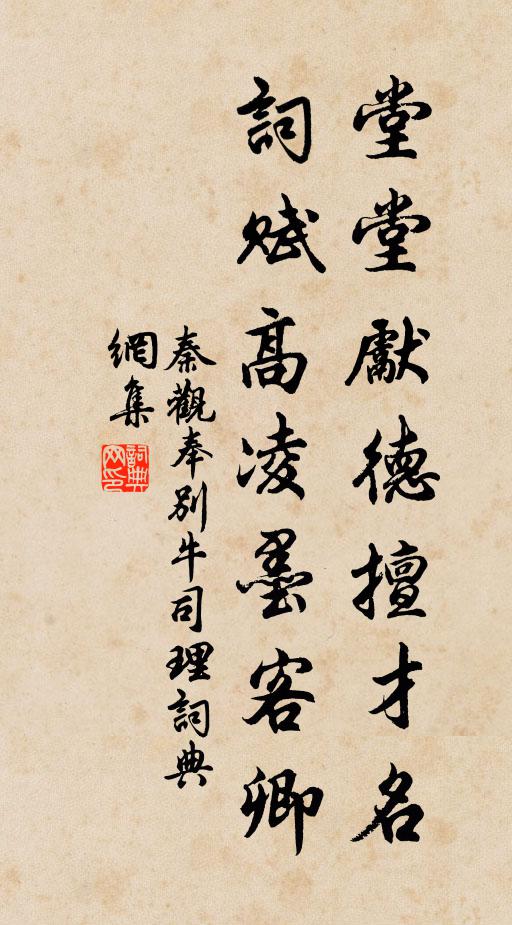 堂堂獻德擅才名
詞賦高凌墨客卿
秦觀奉別牛司理詞典
網集
詞典
网印